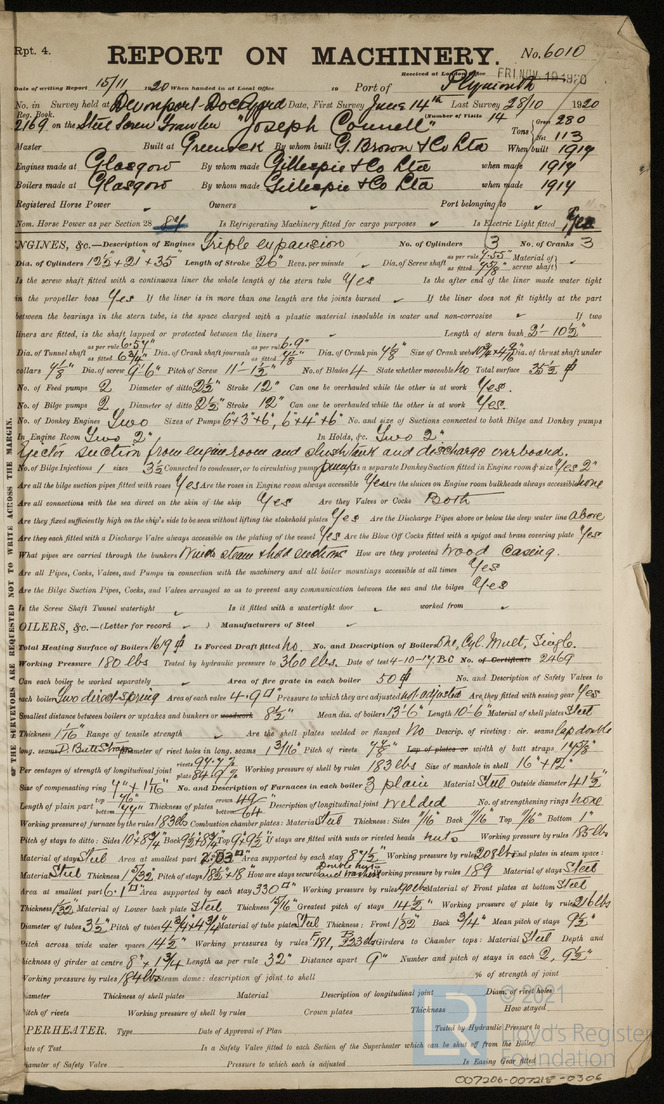 Rpt. 4.
REPORT ON MACHINERY. No. 6010
Received at London Office FRI NOV 19 1920
Date of writing Report 15/11 1920 When handed in at Local Office 19 Port of Plymouth
No. in Survey held at Devonport Dockyard Date, First Survey June 14th Last Survey 28/10 1920
Reg. Book. (Number of Visits 14
2169 on the Steel Screw Trawler "Joseph Connell" Tons Gross 280 Net 113
Master Built at Greenock By whom built G. Brown & Co Ltd When built 1919
Engines made at Glasgow By whom made Gillespie & Co Ltd when made 1919
Boilers made at Glasgow By whom made Gillespie & Co Ltd when made 1919
Registered Horse Power Owners Port belonging to
Nom. Horse Power as per Section 28 84 Is Refrigerating Machinery fitted for cargo purposes Is Electric Light fitted Yes
ENGINES, &c.—Description of Engines Triple expansion No. of Cylinders 3 No. of Cranks 3
Dia. of Cylinders 12½ + 21 + 35" Length of Stroke 26" Revs. per minute Dia. of Screw shaft as per rule 7.55" as fitted 7⅞" Material of screw shaft
Is the screw shaft fitted with a continuous liner the whole length of the stern tube Yes Is the after end of the liner made water tight
in the propeller boss Yes If the liner is in more than one length are the joints burned If the liner does not fit tightly at the part
between the bearings in the stern tube, is the space charged with a plastic material insoluble in water and non-corrosive If two
liners are fitted, is the shaft lapped or protected between the liners Length of stern bush 2'-10½"
Dia. of Tunnel shaft as per rule 6.57" as fitted 6¾" Dia. of Crank shaft journals as per rule 6.9" as fitted 7⅛" Dia. of Crank pin 7⅛" Size of Crank webs Dia. of thrust shaft under
collars 7⅛" Dia. of screw 9'-6" Pitch of Screw 11'-1½" No. of Blades 4 State whether moveable No Total surface 35½
No. of Feed pumps 2 Diameter of ditto 2½" Stroke 12" Can one be overhauled while the other is at work Yes.
No. of Bilge pumps 2 Diameter of ditto 2½" Stroke 12" Can one be overhauled while the other is at work Yes.
No. of Donkey Engines Two Sizes of Pumps 6"+3"+6", 6"+4"+6" No. and size of Suctions connected to both Bilge and Donkey pumps
In Engine Room Two 2" In Holds, &c. Two 2"
Ejector suction from engine room and slush tank and discharge overboard.
No. of Bilge Injections 1 sizes 3½ Connected to condenser, or to circulating pump pump Is a separate Donkey Suction fitted in Engine room & size Yes 2"
Are all the bilge suction pipes fitted with roses Yes Are the roses in Engine room always accessible Yes Are the sluices on Engine room bulkheads always accessible none
Are all connections with the sea direct on the skin of the ship Yes Are they Valves or Cocks Both
Are they fixed sufficiently high on the ship's side to be seen without lifting the stokehold plates Yes Are the Discharge Pipes above or below the deep water line above
Are they each fitted with a Discharge Valve always accessible on the plating of the vessel Yes Are the Blow Off Cocks fitted with a spigot and brass covering plate Yes
What pipes are carried through the bunkers Winch steam & hold suctions How are they protected Wood casing.
Are all Pipes, Cocks, Valves, and Pumps in connection with the machinery and all boiler mountings accessible at all times Yes
Are the Bilge Suction Pipes, Cocks, and Valves arranged so as to prevent any communication between the sea and the bilges Yes
Is the Screw Shaft Tunnel watertight Is it fitted with a watertight door worked from
OILERS, &c.—(Letter for record ) Manufacturers of Steel
Total Heating Surface of Boilers 1619 Is Forced Draft fitted No. No. and Description of Boilers One, Cyl. Mult, Single.
Working Pressure 180 lbs Tested by hydraulic pressure to 360 lbs. Date of test 4-10-17 BC No. of Certificate 2469
Can each boiler be worked separately Area of fire grate in each boiler 50 No. and Description of Safety Valves to
each boiler Two direct spring Area of each valve 4.9 Pressure to which they are adjusted not adjusted Are they fitted with easing gear Yes
Smallest distance between boilers or uptakes and bunkers or woodwork 8½" Mean dia. of boilers 13'-6" Length 10'-6" Material of shell plates Steel
Thickness 1 1/16" Range of tensile strength Are the shell plates welded or flanged No Descrip. of riveting: cir. seams lap double
long. seams D. Butt Straps Diameter of rivet holes in long. seams 1 3/16" Pitch of rivets 7⅞" Lap of plates or width of butt straps
Per centages of strength of longitudinal joint rivets plate 84.9% Working pressure of shell by rules 183 lbs Size of manhole in shell 16" + 12"
Size of compensating ring No. and Description of Furnaces in each boiler 3 plain Material Steel Outside diameter 41½"
Length of plain part top bottom Thickness of plates crown bottom Description of longitudinal joint welded No. of strengthening rings none
Working pressure of furnace by the rules 183 lbs Combustion chamber plates: Material Steel Thickness: Sides 11/16" Back 11/16 Top 11/16" Bottom 1"
Pitch of stays to ditto: Sides Back Top If stays are fitted with nuts or riveted heads nuts Working pressure by rules 185 lbs
Material of stays Steel Area at smallest part 2.03 Area supported by each stay 87½" Working pressure by rules 208 lbs End plates in steam space:
Material Steel Thickness 1 5/32" Pitch of stays 18½ + 18 How are stays secured Double nuts and washers Working pressure by rules 189 Material of stays Steel
Area at smallest part 6.1 Area supported by each stay 330 Working pressure by rules Material of Front plates at bottom Steel
Thickness 1/32" Material of Lower back plate Steel Thickness 15/16" Greatest pitch of stays 14½" Working pressure of plate by rules 216 lbs
Diameter of tubes 3½" Pitch of tubes 4¾ + 4¾ Material of tube plates Steel Thickness: Front Back ¾" Mean pitch of stays 9½"
Pitch across wide water spaces 14½" Working pressures by rules F 181, B 223 lbs Girders to Chamber tops: Material Steel Depth and
thickness of girder at centre 8" + 1¾ Length as per rule 32" Distance apart 9" Number and pitch of stays in each 2, 9½"
Working pressure by rules 184 lbs Steam dome: description of joint to shell % of strength of joint
Diameter Thickness of shell plates Material Description of longitudinal joint Diam. of rivet holes
Pitch of rivets Working pressure of shell by rules Crown plates Thickness How stayed
UPERHEATER. Type Date of Approval of Plan Tested by Hydraulic Pressure to
Date of Test Is a Safety Valve fitted to each Section of the Superheater which can be shut off from the Boiler
Diameter of Safety Valve Pressure to which each is adjusted Is Easing Gear fitted
OF THE SURVEYORS ARE REQUESTED NOT TO WRITE ACROSS THE MARGIN.
© 2021
Lloyd's Register
Foundation
007206-007215-0306